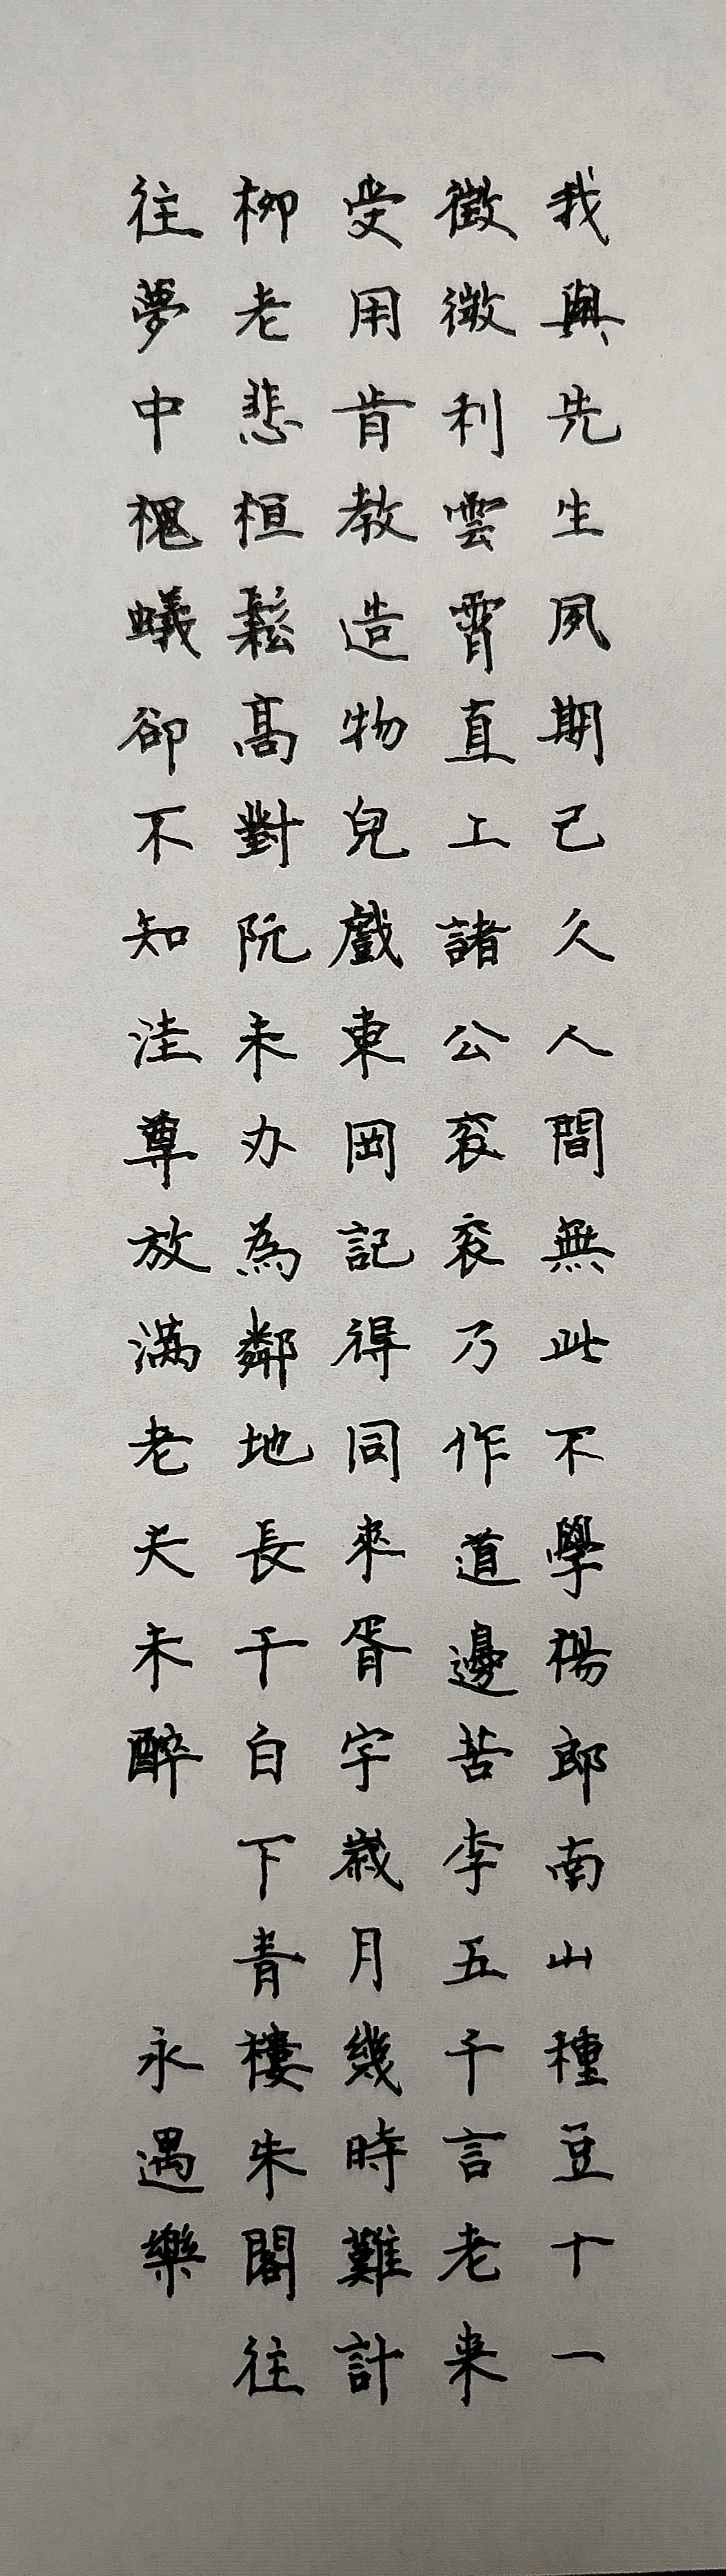 我與先生夙期已久人間無此不學楊郎南山種豆十一
徵徵利雲霄直上諸公衮衮乃作道邊苦李五千言老来
受用肯教造物兒戲東岡記得同來胥宇歲月幾時難計
柳老悲桓鬆高對阮未办為鄰地長干白下青樓朱閣往
往夢中槐蟻卻不知洼尊放滿老夫未醉
永遇樂